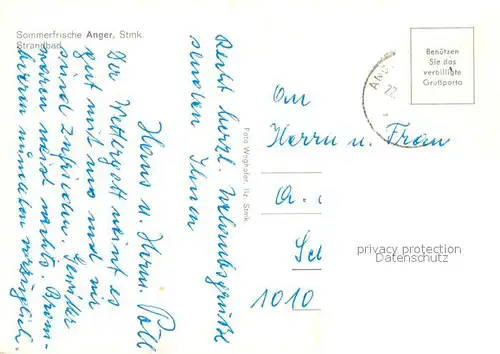 Sommerfrische Anger, Stmk.
Strandbad
Recht herzl. Urlaubsgrüße
senden Ihnen
Hans u. Herm.
Der Wettergott meint es
gut mit uns und wir
sind zufrieden. Gewitter
waren meist nachts. Brom-
beeren
Foto Waghofer, Ilz, Stmk.
Benützen
Sie das
verbilligte
Grußporto
ANG
22.
An
Herrn u. Frau
A.
1010
privacy protection
Datenschutz